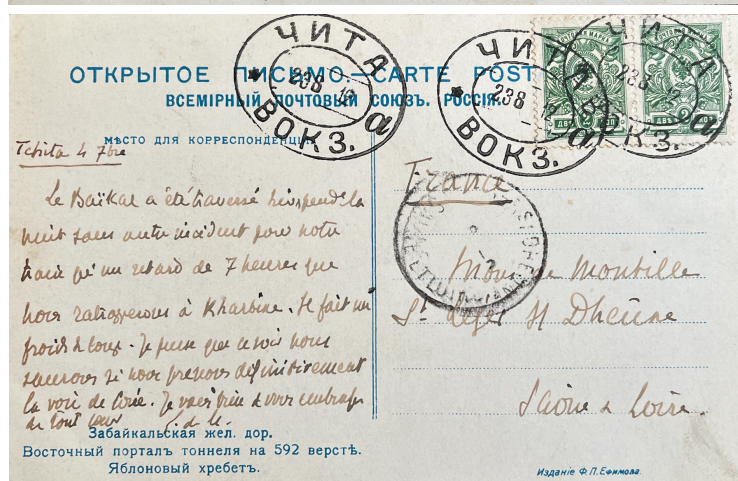 ОТКРЫТОЕ ПИСЬМО.—CARTE POSTALE
ВСЕМІРНЫЙ ПОЧТОВЫЙ СОЮЗЪ. РОССІЯ.
ЧИТА
238 12
ВОКЗ.
а
ЧИТА
238 12
ВОКЗ.
а
ЧИТА
238 12
ВОКЗ.
а
МѢСТО ДЛЯ КОРРЕСПОНДЕНЦІИ
Tchita 4 7bre
Le Baïkal a été traversé hier pendant la
nuit sans autre incident pour notre
train qu'un retard de 7 heures que
nous rattraperons à Kharbine. Il fait un
froid de loup. Je pense que ce soir nous
saurons si nous prenons définitivement
la voie de Corée. Je vais bien & vous embrasse
de tout cœur
France
de Montille
St Léger s/ Dheune
Saône & Loire.
Забайкальская жел. дор.
Восточный порталъ тоннеля на 592 верстѣ.
Яблоновый хребетъ.
Изданіе Ф. П. Ефимова.